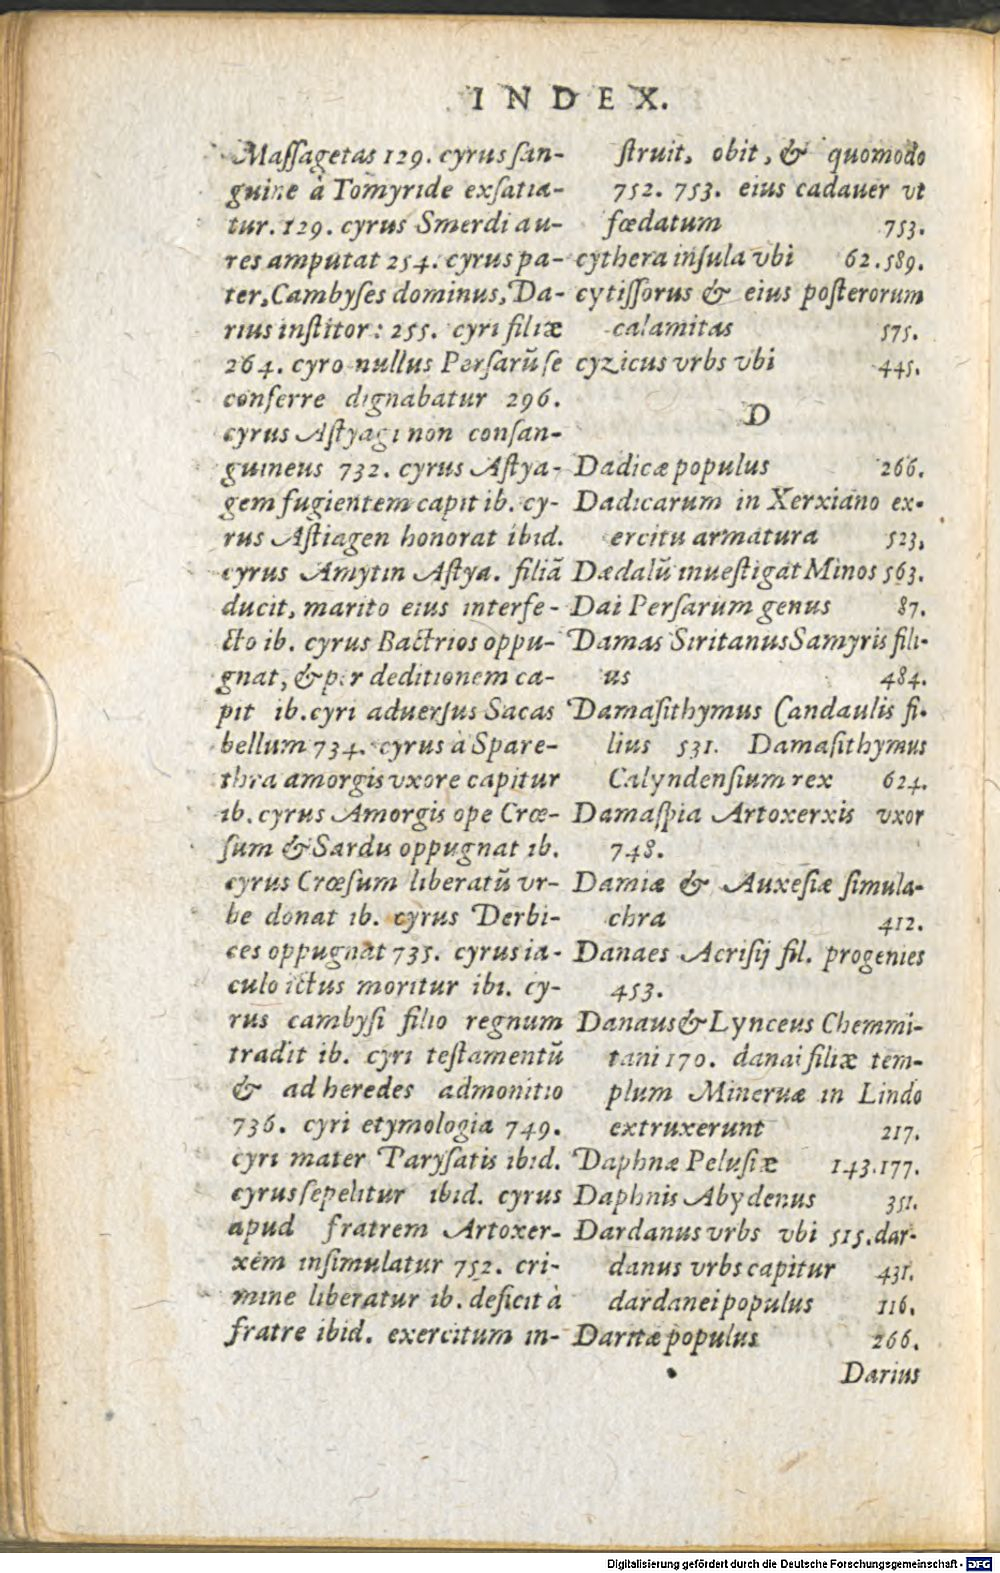 INDEX.
Maſſagetas 129. cyrus ſan-
guine à Tomyride exſatia-
tur. 129. cyrus Smerdi au-
res amputat 254. cyrus pa-
ter, Cambyſes dominus, Da-
rius inſtitor: 255. cyri filiæ
264. cyro nullus Perſarũ ſe
conferre dignabatur 296.
cyrus Aſtyagi non conſan-
guineus 732. cyrus Aſtya-
gem fugientem capit ib. cy-
rus Aſtiagen honorat ibid.
cyrus Amytin Aſtya. filiã
ducit, marito eius interfe-
cto ib. cyrus Bactrios oppu-
gnat, & per deditionem ca-
pit ib. cyri aduerſus Sacas
bellum 734. cyrus à Spare-
thra amorgis vxore capitur
ib. cyrus Amorgis ope Crœ-
ſum & Sardis oppugnat ib.
cyrus Crœſum liberatũ vr-
be donat ib. cyrus Derbi-
ces oppugnat 735. cyrus ia-
culo ictus moritur ibi. cy-
rus cambyſi filio regnum
tradit ib. cyri teſtamentũ
& ad heredes admonitio
736. cyri etymologia 749.
cyri mater Paryſatis ibid.
cyrus ſepelitur ibid. cyrus
apud fratrem Artoxer-
xem inſimulatur 752. cri-
mine liberatur ib. deficit à
fratre ibid. exercitum in-
ſtruit, obit, & quomodo
752. 753. eius cadauer vt
fœdatum 753.
cythera inſula vbi 62.589.
cytiſſorus & eius poſterorum
calamitas 575.
cyzicus vrbs vbi 445.
D
Dadicæ populus 266.
Dadicarum in Xerxiano ex-
ercitu armatura 523.
Dædalũ inueſtigat Minos 563.
Dai Perſarum genus 87.
Damas Siritanus Samyris fili-
us 484.
Damaſithymus Candaulis fi-
lius 531. Damaſithymus
Calyndenſium rex 624.
Damaſpia Artoxerxis vxor
748.
Damiæ & Auxeſiæ ſimula-
chra 412.
Danaes Acriſij fil. progenies
453.
Danaus & Lynceus Chemmi-
tani 170. danai filiæ tem-
plum Mineruæ in Lindo
extruxerunt 217.
Daphnæ Peluſiæ 143.177.
Daphnis Abydenus 351.
Dardanus vrbs vbi 515. dar-
danus vrbs capitur 431.
dardanei populus 116.
Daritæ populus 266.
Darius
Digitalisierung gefördert durch die Deutsche Forschungsgemeinschaft - DFG